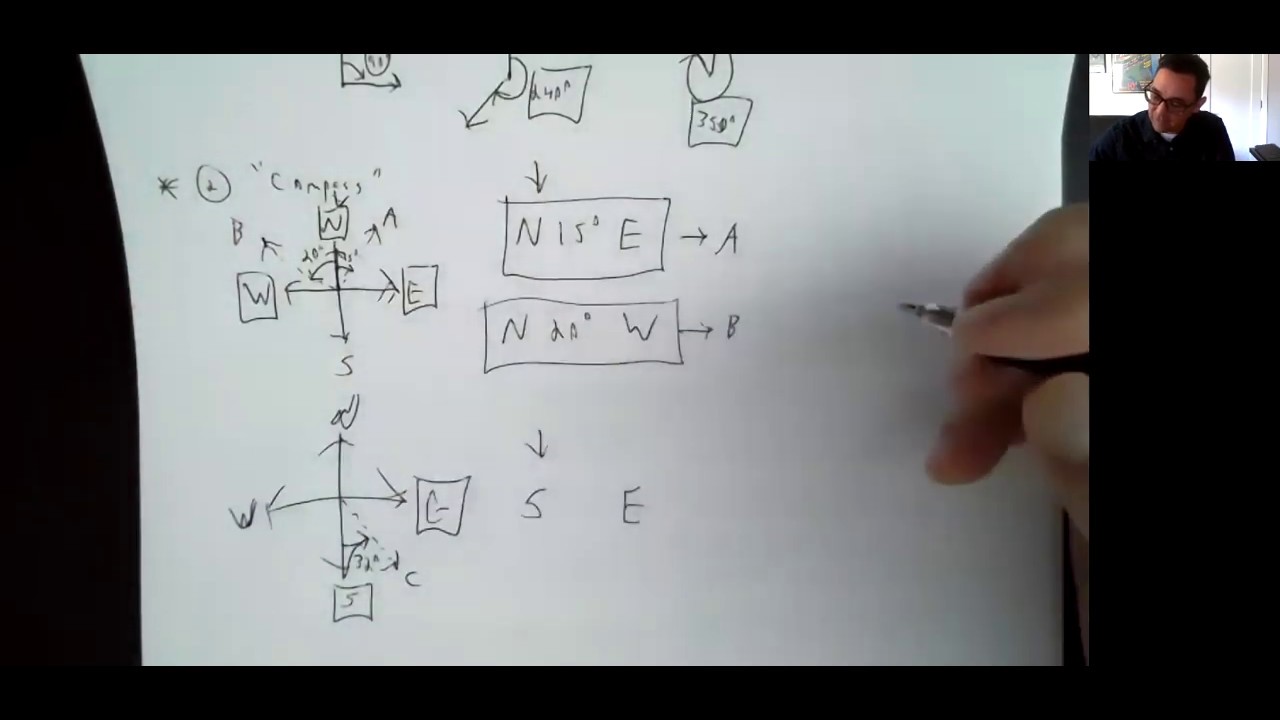 240°
350°
* 2 "Compass"
B N A
20° 15°
W E
S
N 15° E → A
N 20° W → B
N
W E
32°
C
S
S E